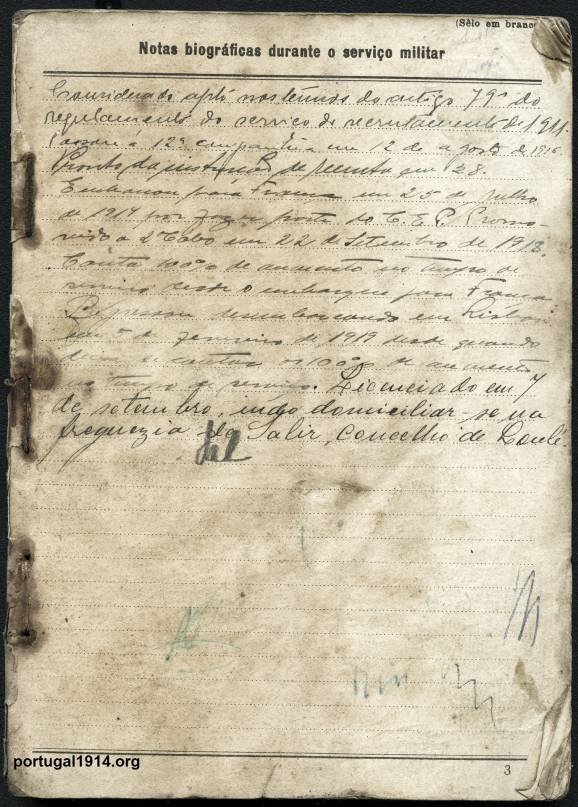 (Sêlo em branco
Notas biográficas durante o serviço militar
Considerado apto nos têrmos do artigo 79º do
regulamento do serviço de recrutamento de 1911.
a 12ª companhia em 12 de agosto de 1916.
Pronto da instrução de recruta em 28.
Embarcou para França em 25 de julho
de 1917 por fazer parte do C.E.P. Promo-
vido a 2º Cabo em 22 de Setembro de 1918.
Conta 100% de aumento no tempo de
serviço desde o embarque para França
Regressou desembarcando em Lisboa
em de fevereiro de 1919 desde quando
de contar os 100% de aumento
no tempo de serviço. Licenciado em 7
de setembro, indo domiciliar-se na
freguezia de Salir, concelho de Loulé.
3
portugal1914.org